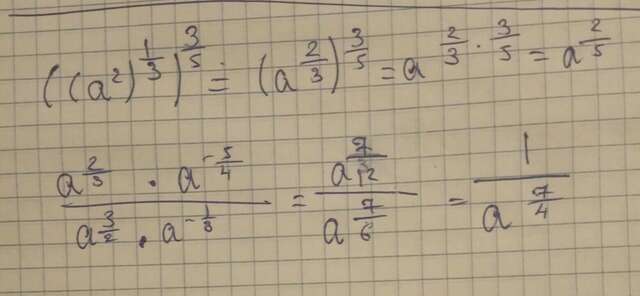 ((a²)^(1/3))^(3/5) = (a^(2/3))^(3/5) = a^(2/3 · 3/5) = a^(2/5)
(a^(2/3) · a^(-5/4)) / (a^(3/2) · a^(-1/3)) = a^(7/12) / a^(7/6) = 1 / a^(7/4)